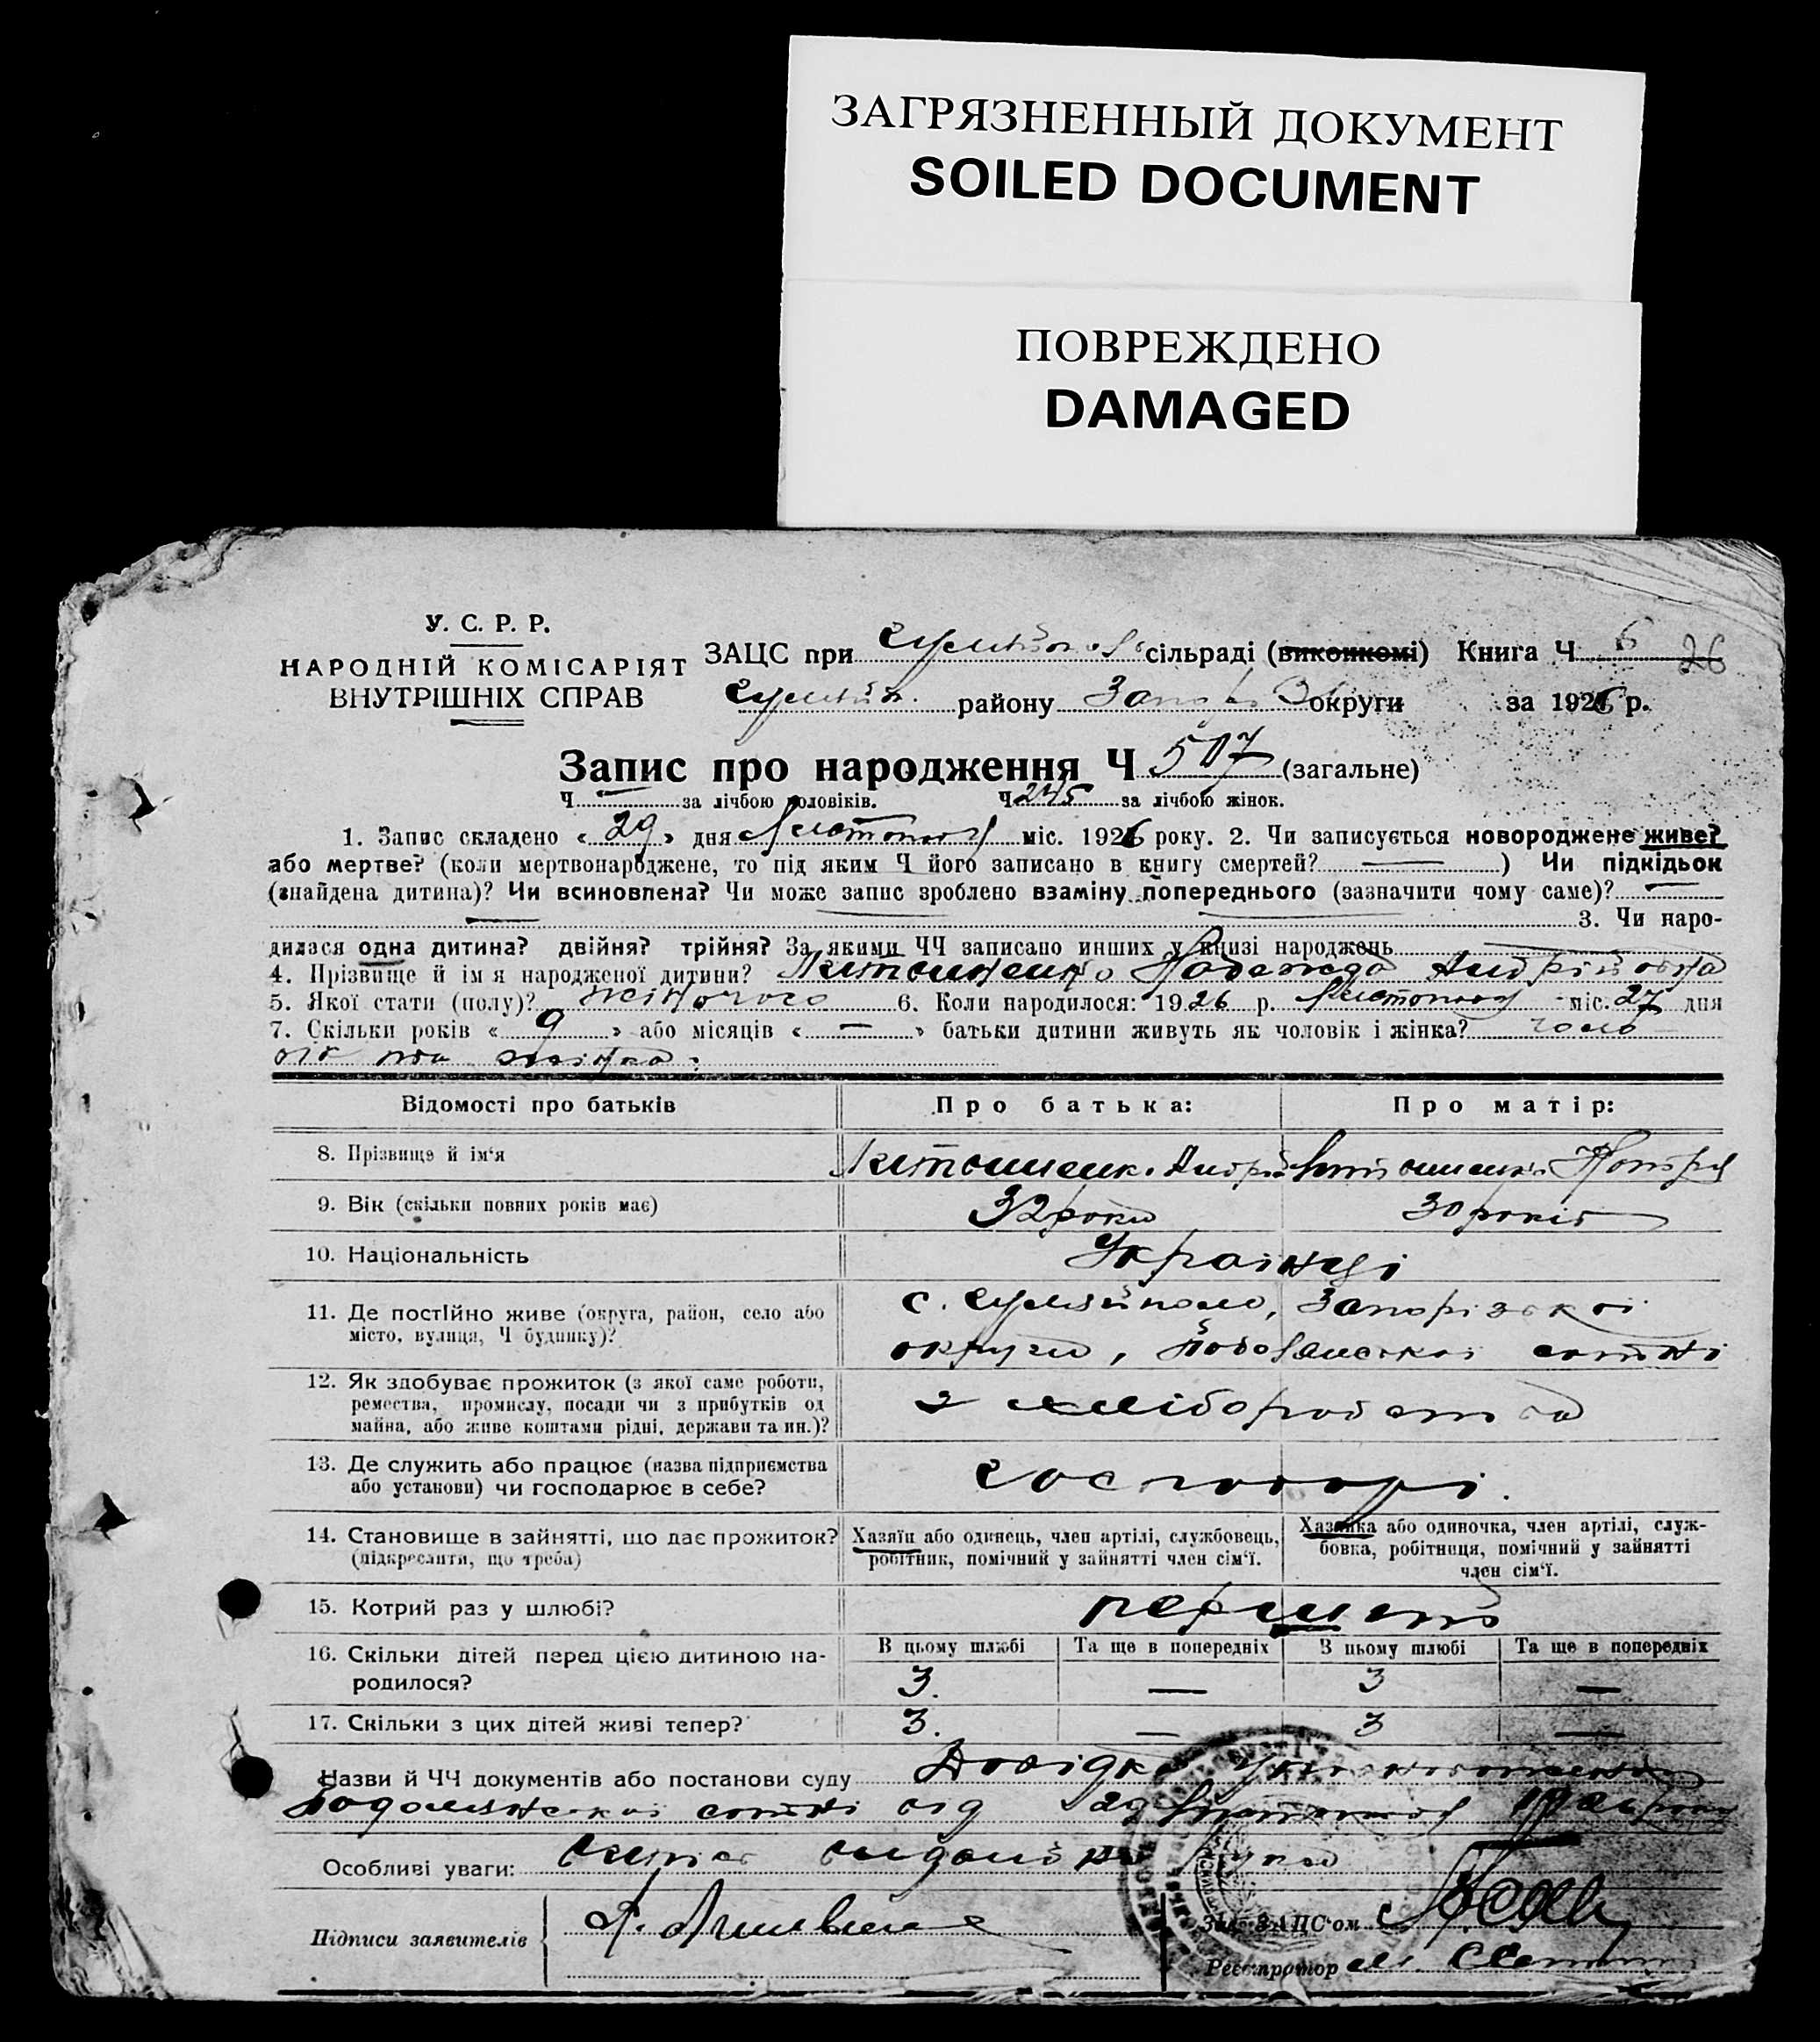 ЗАГРЯЗНЕННЫЙ ДОКУМЕНТ
SOILED DOCUMENT
ПОВРЕЖДЕНО
DAMAGED
У. С. Р. Р.
НАРОДНІЙ КОМІСАРІЯТ
ВНУТРІШНІХ СПРАВ
ЗАЦС при сільраді (виконкомі) Книга Ч 6 26
району округи за 1926 р.
Запис про народження Ч 507 (загальне)
Ч — за лічбою чоловіків. Ч 245 за лічбою жінок.
1. Запис складено « 29 » дня Листопада міс. 1926 року. 2. Чи записується новороджене живе?
або мертве? (коли мертвонароджене, то під яким Ч його записано в книгу смертей? — ) Чи підкідьок
(знайдена дитина)? Чи всиновлена? Чи може запис зроблено взаміну попереднього (зазначити чому саме)? —
— 3. Чи наро-
дилася одна дитина? двійня? трійня? За якими ЧЧ записано инших у книзі народжень —
4. Прізвище й ім'я народженої дитини? Надежда Андріївна
5. Якої стати (полу)? жіночого 6. Коли народилося: 1926 р. Листопада міс. 27 дня
7. Скільки років « 9 » або місяців « — » батьки дитини живуть як чоловік і жінка? чоло-
вік та жінка.
Відомості про батьків Про батька: Про матір:
8. Прізвище й ім'я Андрій
9. Вік (скільки повних років має) 32 роки 30 років
10. Національність Українці
11. Де постійно живе (округа, район, село або
місто, вулиця, Ч будинку)?
с. Гуляйполе, Запорізької
округи, сотні
12. Як здобуває прожиток (з якої саме роботи,
ремества, промислу, посади чи з прибутків од
майна, або живе коштами рідні, держави та ин.)?
з хліборобства
13. Де служить або працює (назва підприємства
або установи) чи господарює в себе?
господарі.
14. Становище в зайнятті, що дає прожиток?
(підкреслити, що треба)
Хазяїн або одинець, член артілі, службовець,
робітник, помічний у зайнятті член сім'ї.
Хазяйка або одиночка, член артілі, служ-
бовка, робітниця, помічний у зайнятті
член сім'ї.
15. Котрий раз у шлюбі? перший
16. Скільки дітей перед цією дитиною на-
родилося?
В цьому шлюбі Та ще в попередніх В цьому шлюбі Та ще в попередніх
3. — 3 —
17. Скільки з цих дітей живі тепер? 3. — 3 —
Назви й ЧЧ документів або постанови суду Довідка
сотні від 29 Листопада 1926 року
Особливі уваги:
Підписи заявителів
Зав. ЗАЦС'ом
Реєстратор